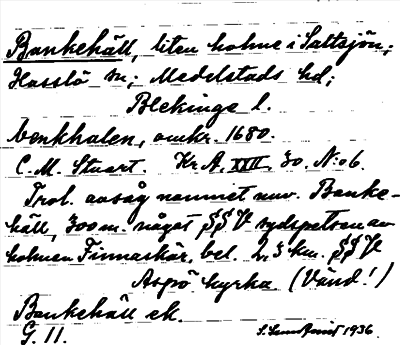 Bankehäll, liten holme i Saltsjön;
Hasslö sn; Medelstads hd;
Blekinge l.
benkhalen, omkr. 1680.
C. M. Stuart. Kr. A, XXII, 30. N:o 6.
Trol. avsåg namnet nuv. Banke-
häll, 300 m. något SSV sydspetsen av
holmen Finnaskär, bel. 2,3 km. SSV
Aspö kyrka (Vänd!)
Bankehäll ek.
G. 11. 1936.